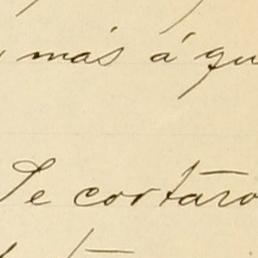 más á qu
Se cortaro